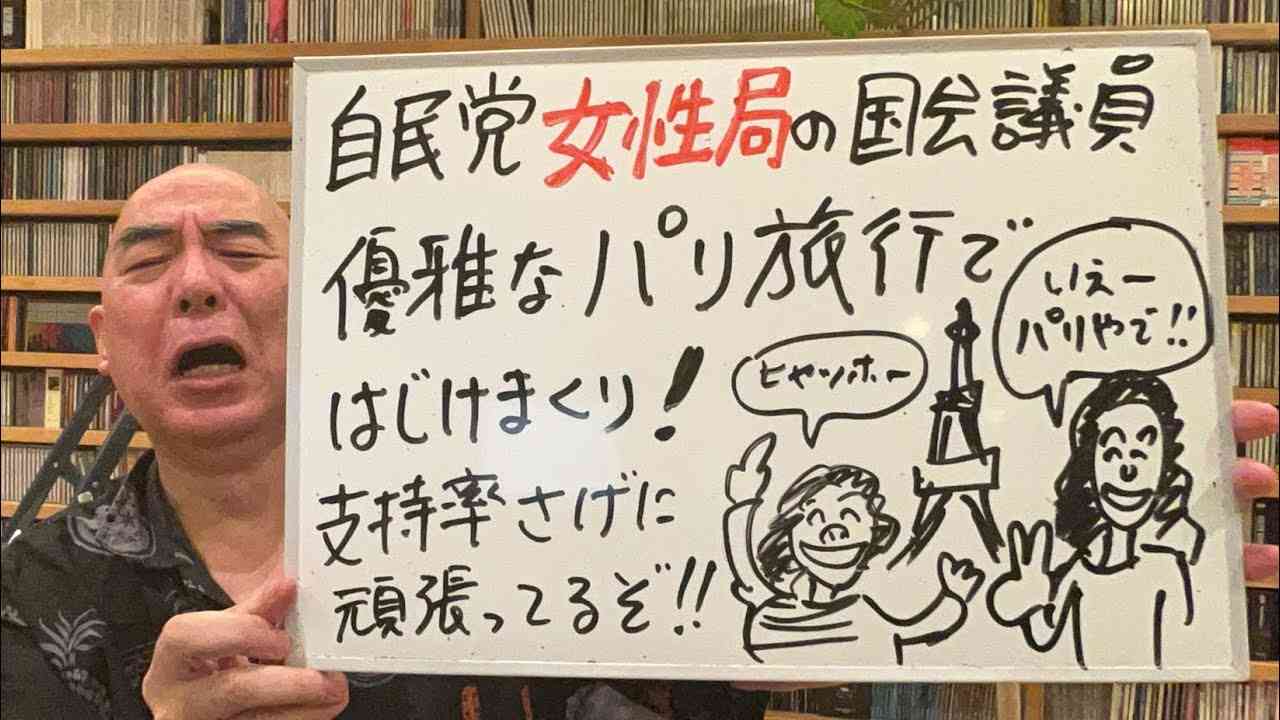 自民党女性局の国会議員
優雅なパリ旅行で
はじけまくり!
支持率さげに
頑張ってるぞ!!
ヒャッホー
いえー
パリやで!!